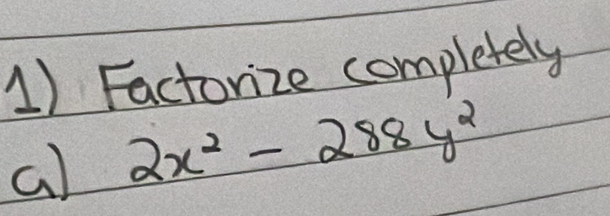 1) Factorize completely
a) 2x² - 288y²